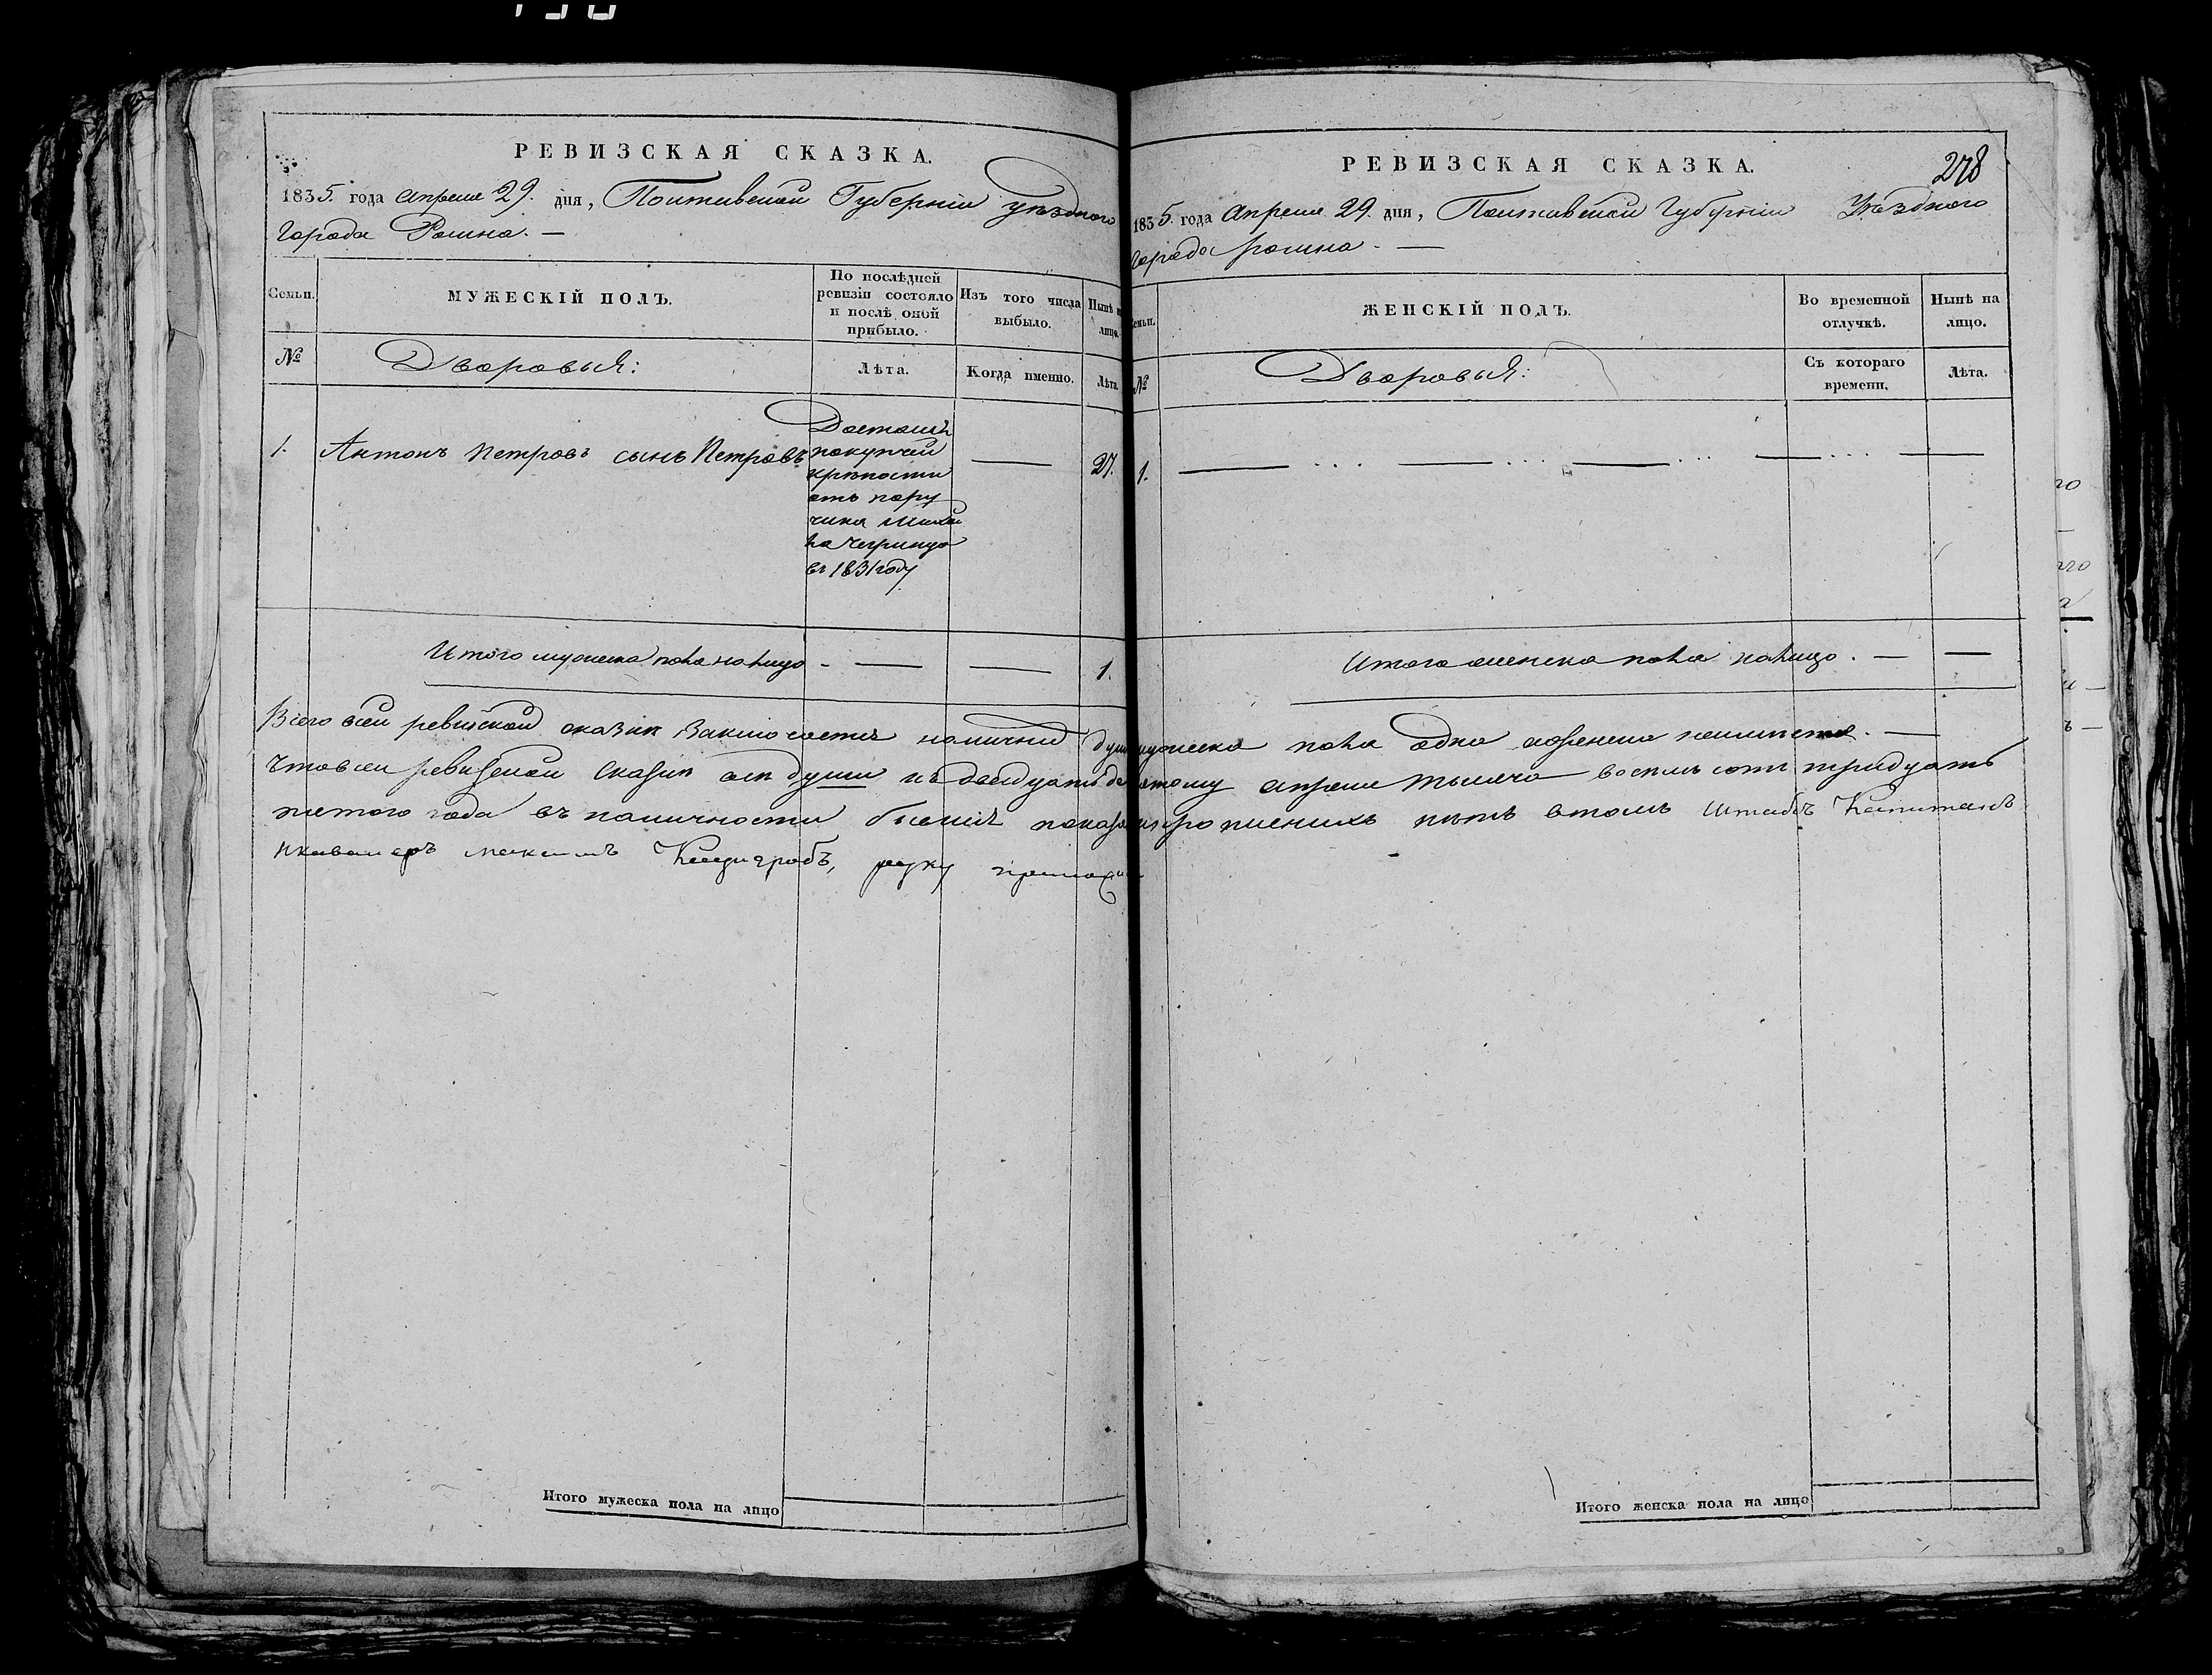 РЕВИЗСКАЯ СКАЗКА.
1835. года апреля 29. дня, Полтавской Губерніи уѣзднаго
Города Ромна. —
Семьи.
МУЖЕСКІЙ ПОЛЪ.
По послѣдней ревизіи состояло и послѣ оной прибыло.
Изъ того числа выбыло.
Нынѣ на лицо.
№
Дворовыя:
Лѣта.
Когда именно.
Лѣта.
1. Антонъ Петровъ сынъ Петровъ — 27.
Досталъ
покупчей
крѣпости
отъ пору
чика
в 1831 году
Итого мужеска пола налицо - — — 1.
Всего всей ревизской сказки заключается наличнй душ мужеска пола одна аженска неимеется. —
Чтовсей ревизской сказки всѣ души къ двадцать девятому апреля тысяча восемь сотъ тридцать
пятого года въ наличности бывшія показаны прописнихъ нѣтъ втомъ Штабъ Капитанъ
икавалеръ руку приложилъ
РЕВИЗСКАЯ СКАЗКА.
278
1835. года Апреля 29. дня, Полтавской Губерніи Уѣздного
города ромна. —
Семьи.
ЖЕНСКІЙ ПОЛЪ.
Во временной отлучкѣ.
Нынѣ на лицо.
№
Дворовыя:
Съ котораго времени,
Лѣта.
1. — ... — ... — ... — ... —
Итого женска пола налицо. — —
Итого мужеска пола на лицо
Итого женска пола на лицо